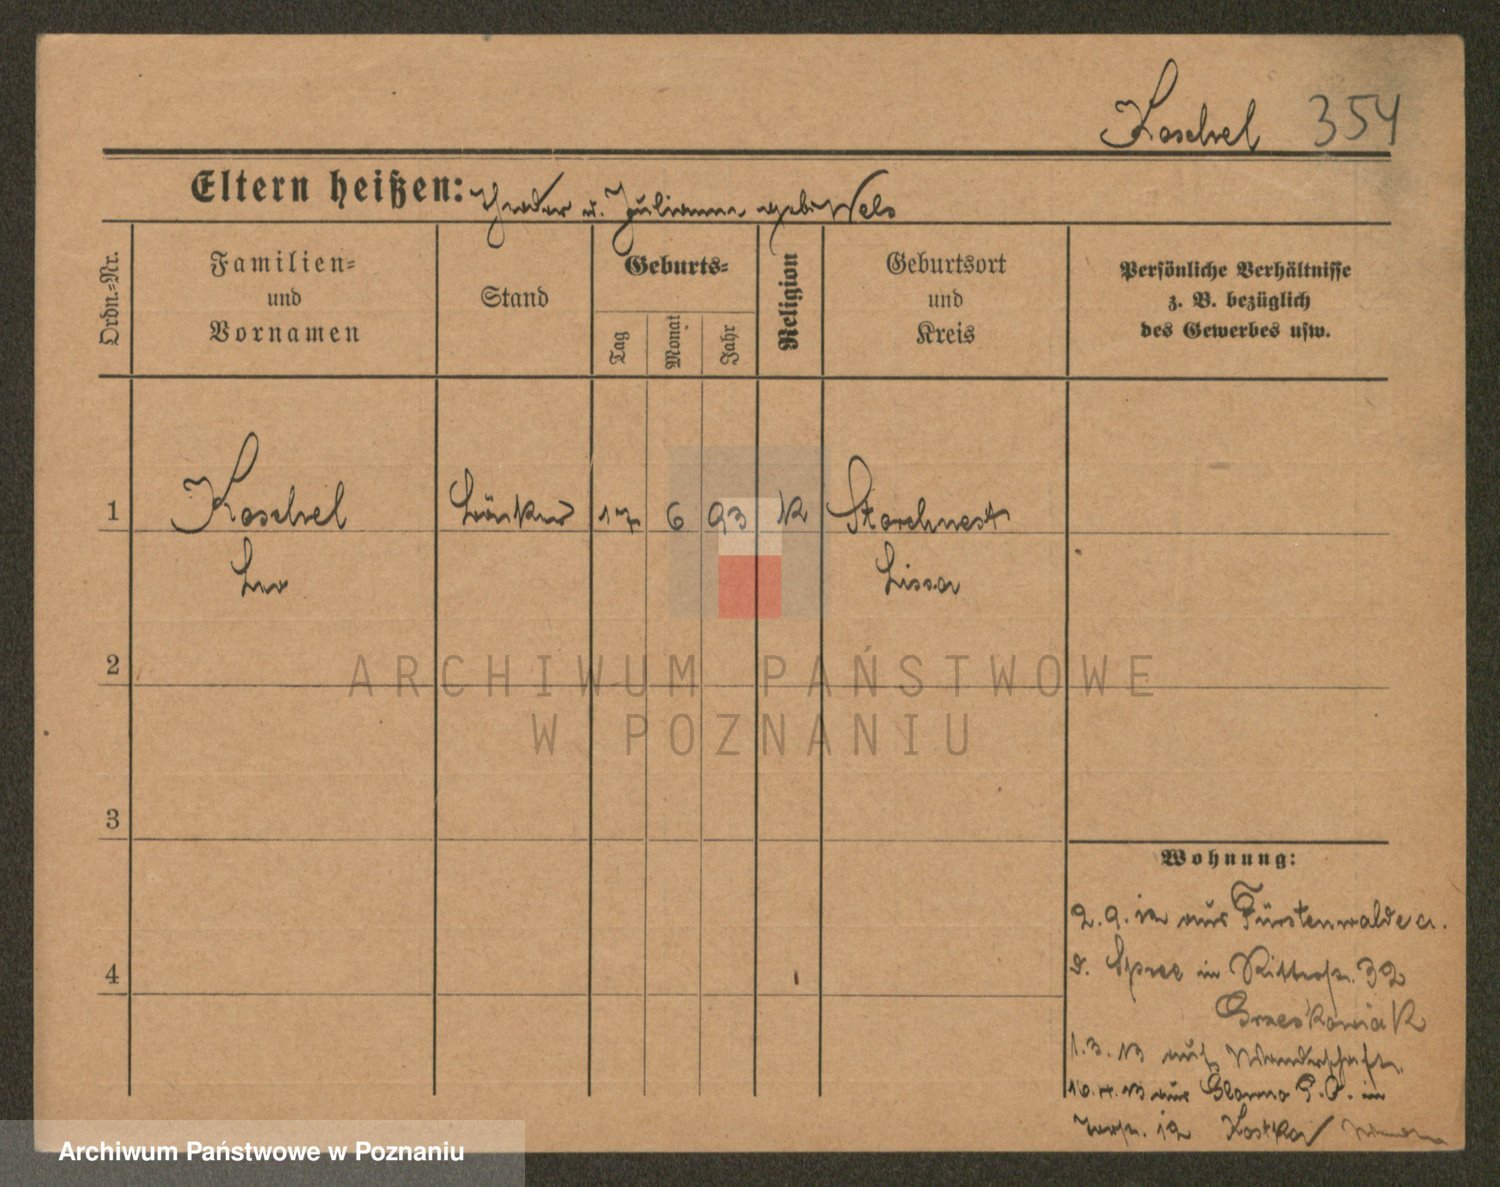 Koschel 354
Eltern heißen: Theodor u. Julianna geb. Wels
Ordn.-Nr.
Familien-
und
Vornamen
Stand
Geburts-
Tag
Monat
Jahr
Religion
Geburtsort
und
Kreis
Persönliche Verhältnisse
z. B. bezüglich
des Gewerbes usw.
1 Koschel 17 6 93 K Storchnest
Leo Lissa
2
ARCHIWUM PAŃSTWOWE
W POZNANIU
3
Wohnung:
2. 9. 12 aus Fürstenwalde a.
d. Spree in Ritterstr. 32
Grzeskowiak
4
1. 3. 13 auf Wanderschaft.
16. 4. 13 aus in
12 Kostka
Archiwum Państwowe w Poznaniu